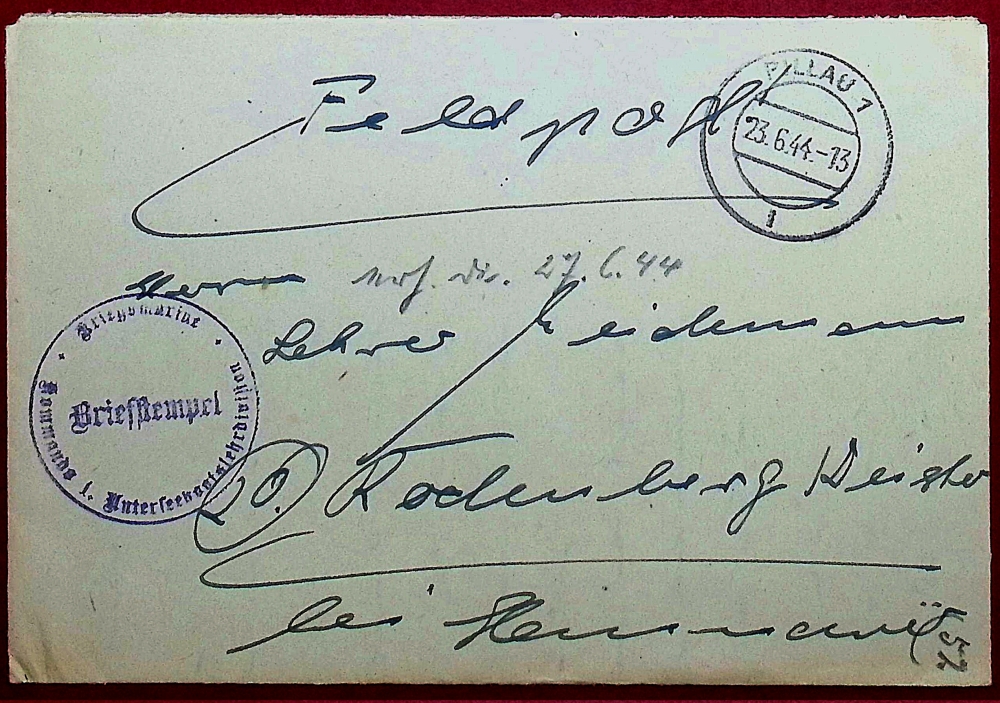 Feldpost
PILLAU 1
23.6.44.-13
1
Herrn
27.6.44
Lehrer Heidemann
Kriegsmarine
Briefstempel
Kommando 1. Unterseebootslehrdivision
20.) Rodenberg Deister
bei Hannover